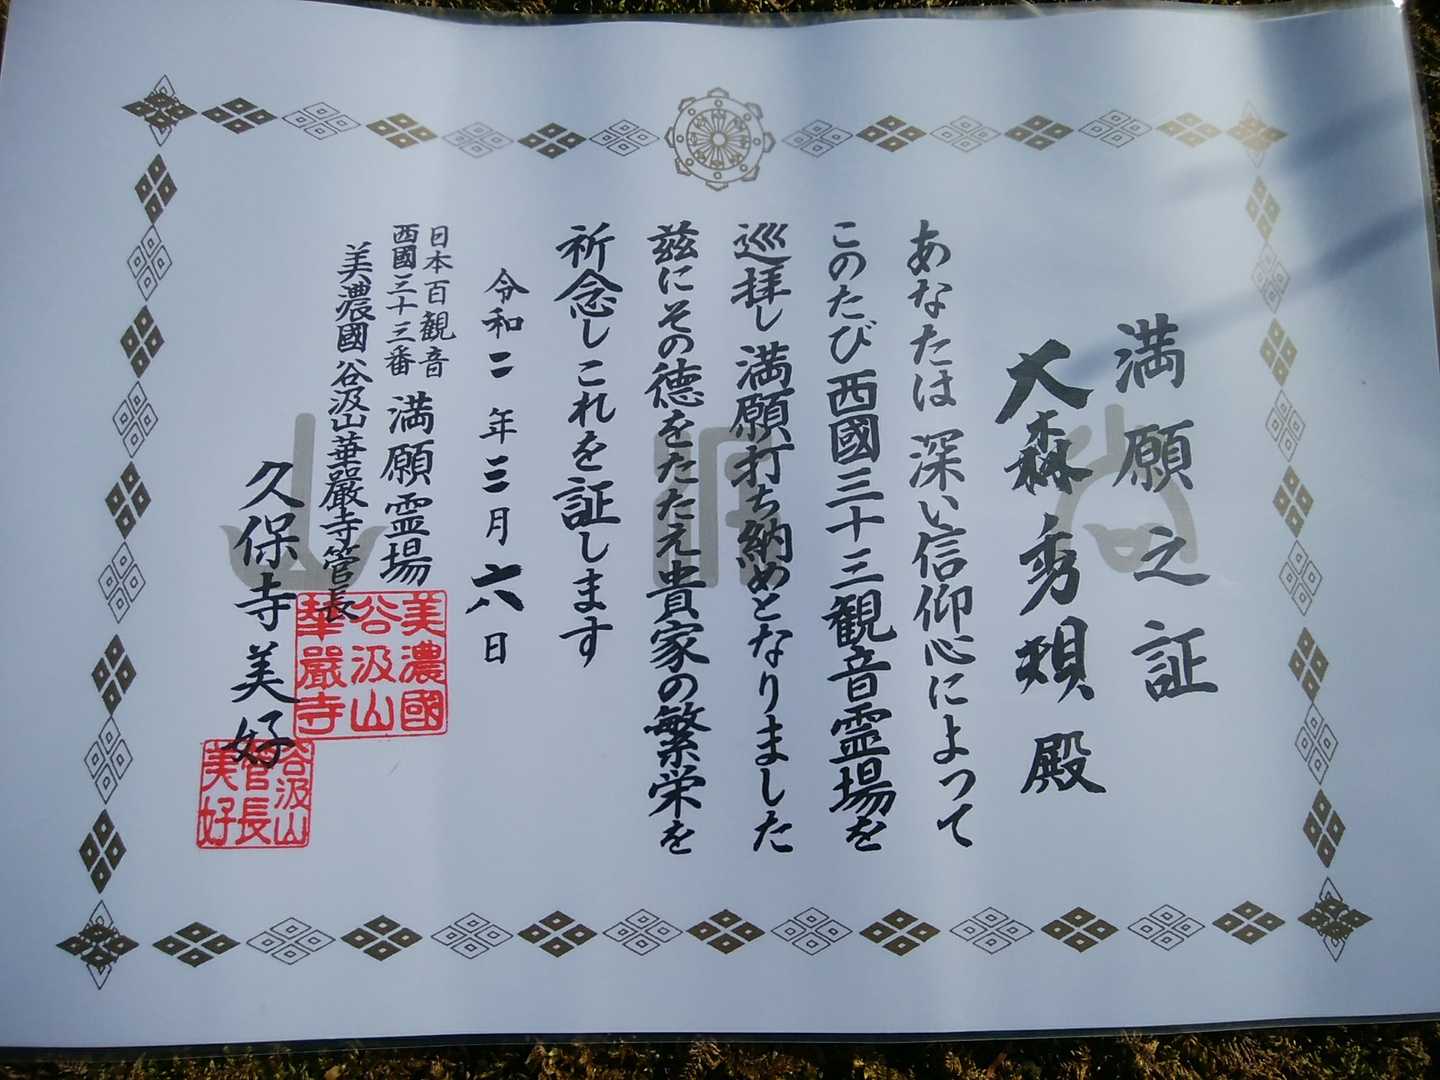 満願之証
大森秀楨殿
あなたは深い信仰心によって
このたび西國三十三観音霊場を
巡拝し満願打ち納めとなりました
茲にその徳をたたえ貴家の繁栄を
祈念しこれを証します
令和二年三月六日
日本百観音
西國三十三番
満願霊場
美濃國谷汲山華厳寺管長
久保寺美好
美濃國
谷汲山
華厳寺
谷汲山
管長
美好